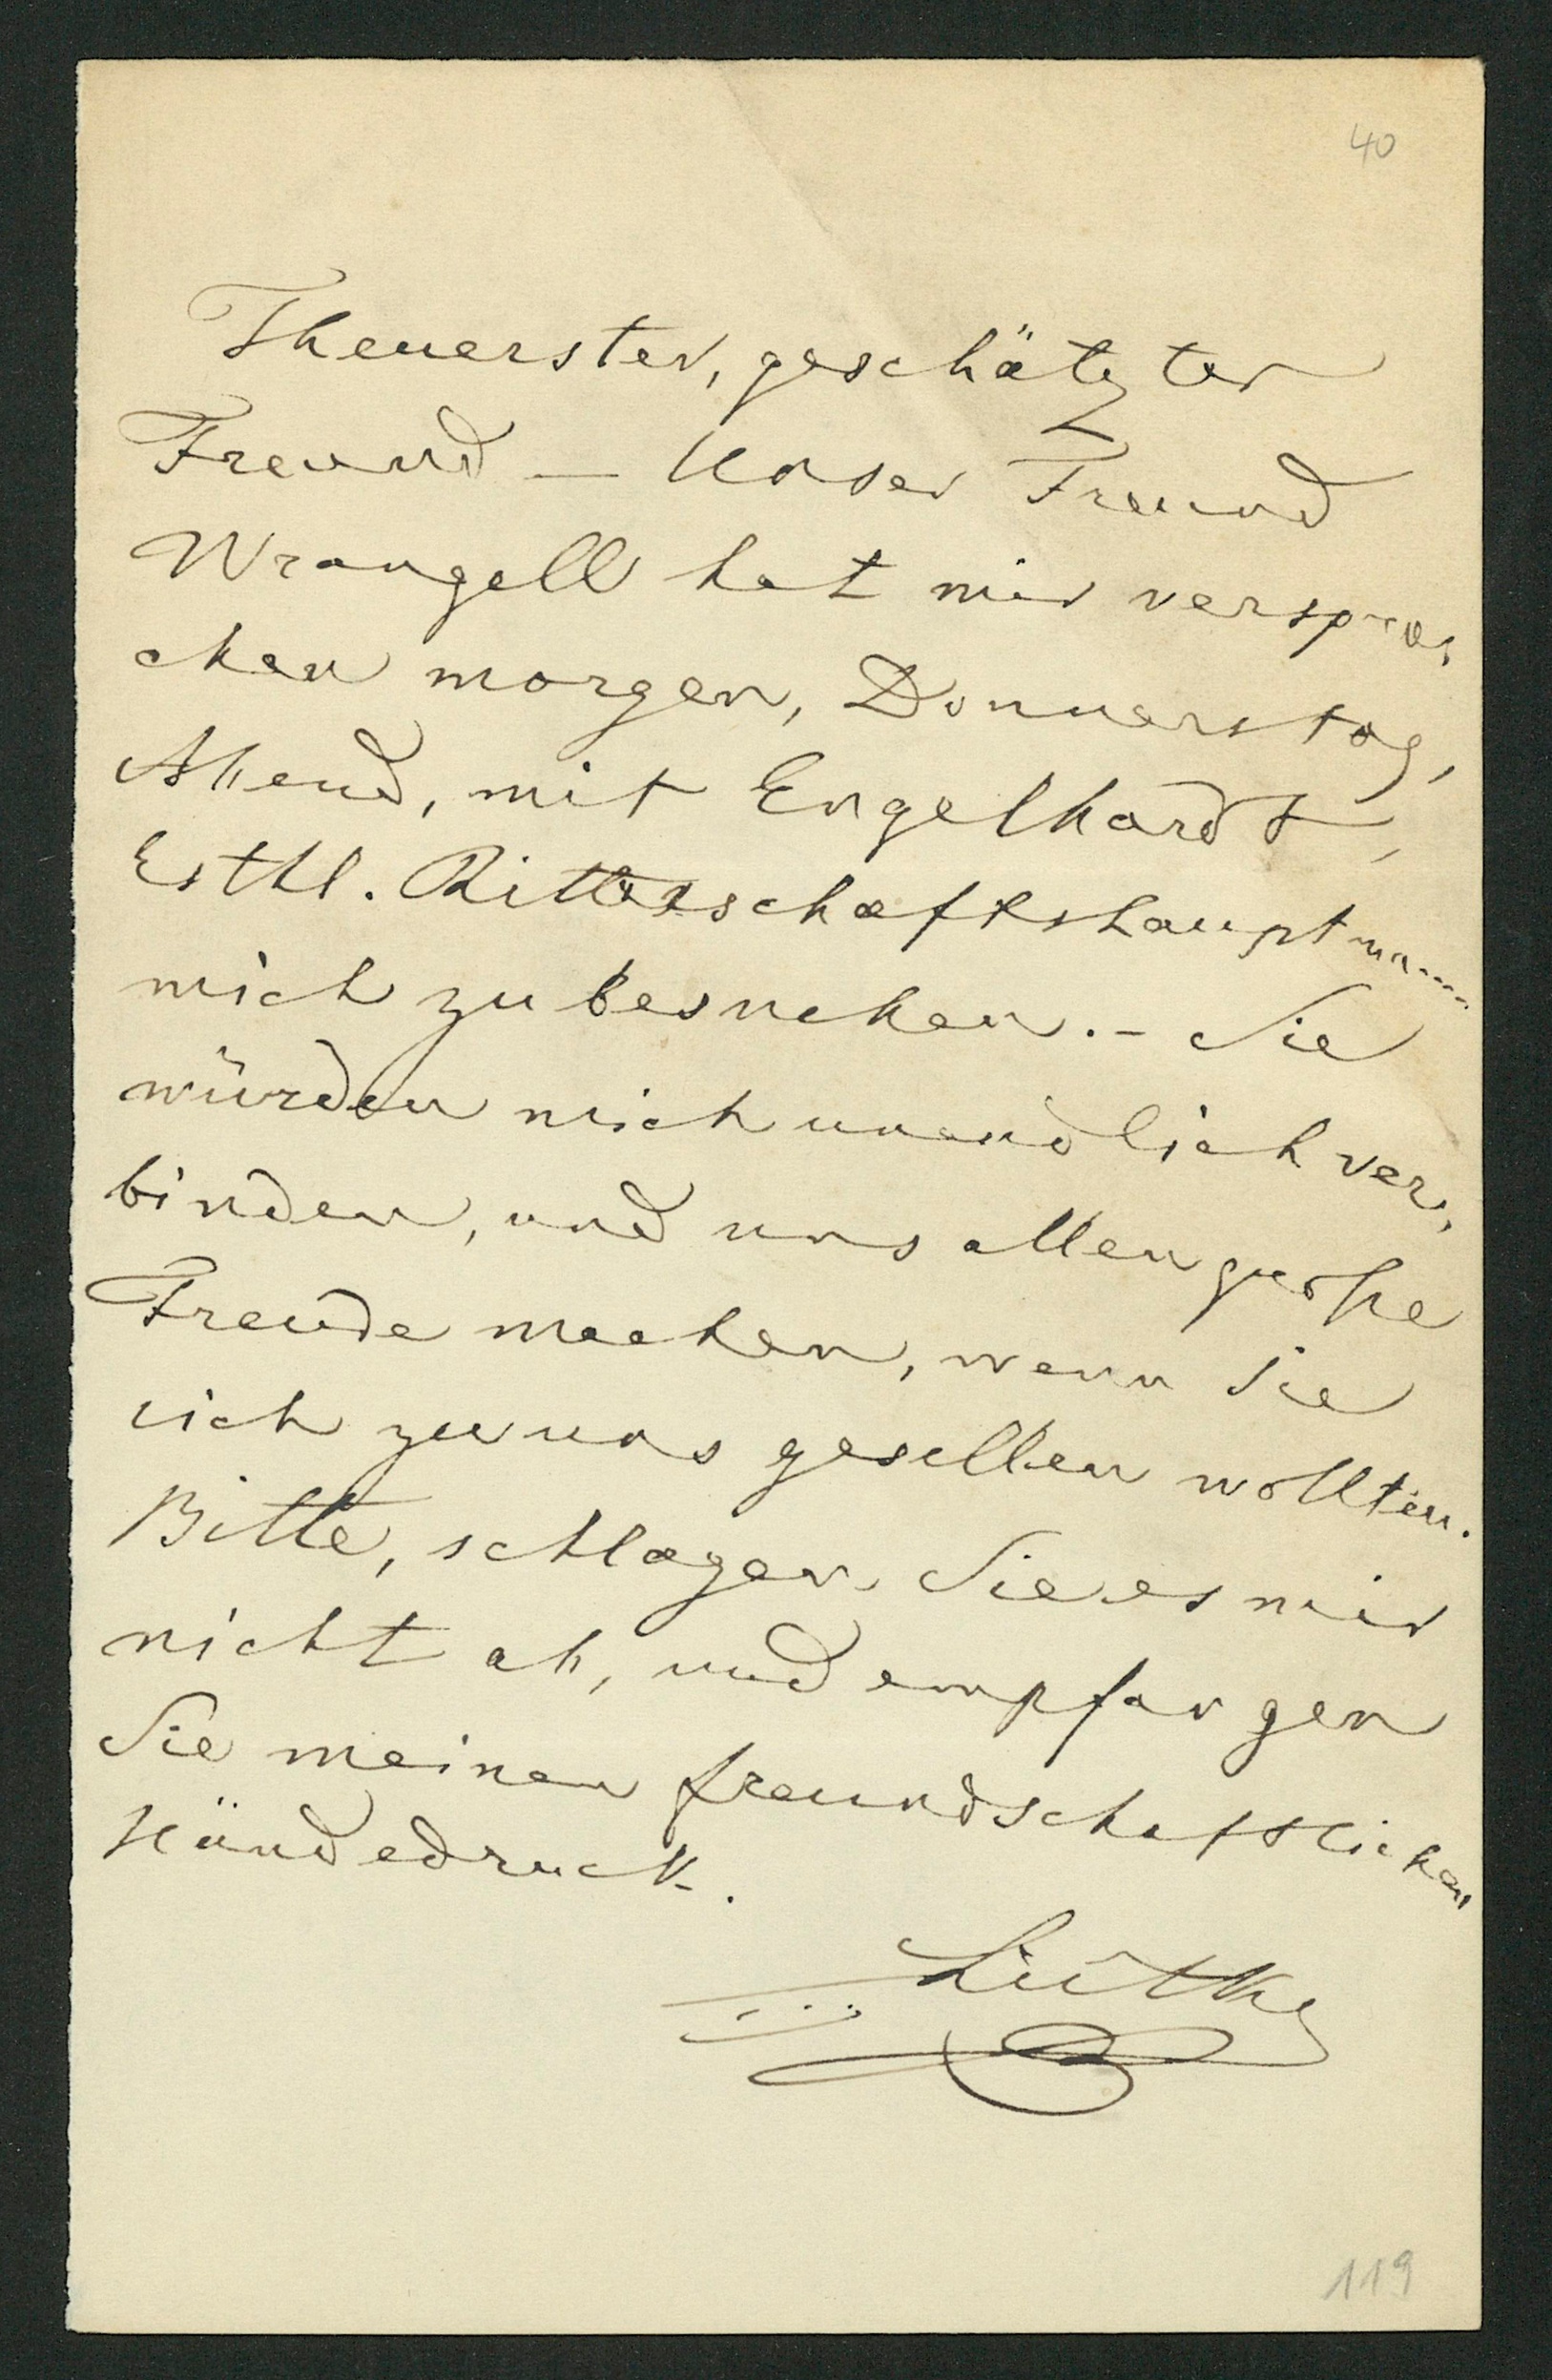 40
Theuerster, geschätzter
Freund — Unser Freund
Wrangell hat mir verspro-
chen morgen, Donnerstag,
Abend, mit Engelhardt,
Esthl. Ritterschaftshauptmann
mich zu besuchen. – Sie
würden mich unendlich ver-
binden, und uns allen große
Freude machen, wenn Sie
sich zu uns gesellen wollten.
Bitte, schlagen Sie es mir
nicht ab, und empfangen
Sie meinen freundschaftlichen
Händedruck.
Lütke
119